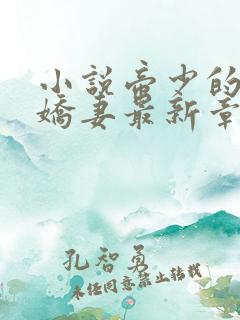 小説帝少的
嬌妻最新章
孔智勇
未经同意禁止转载